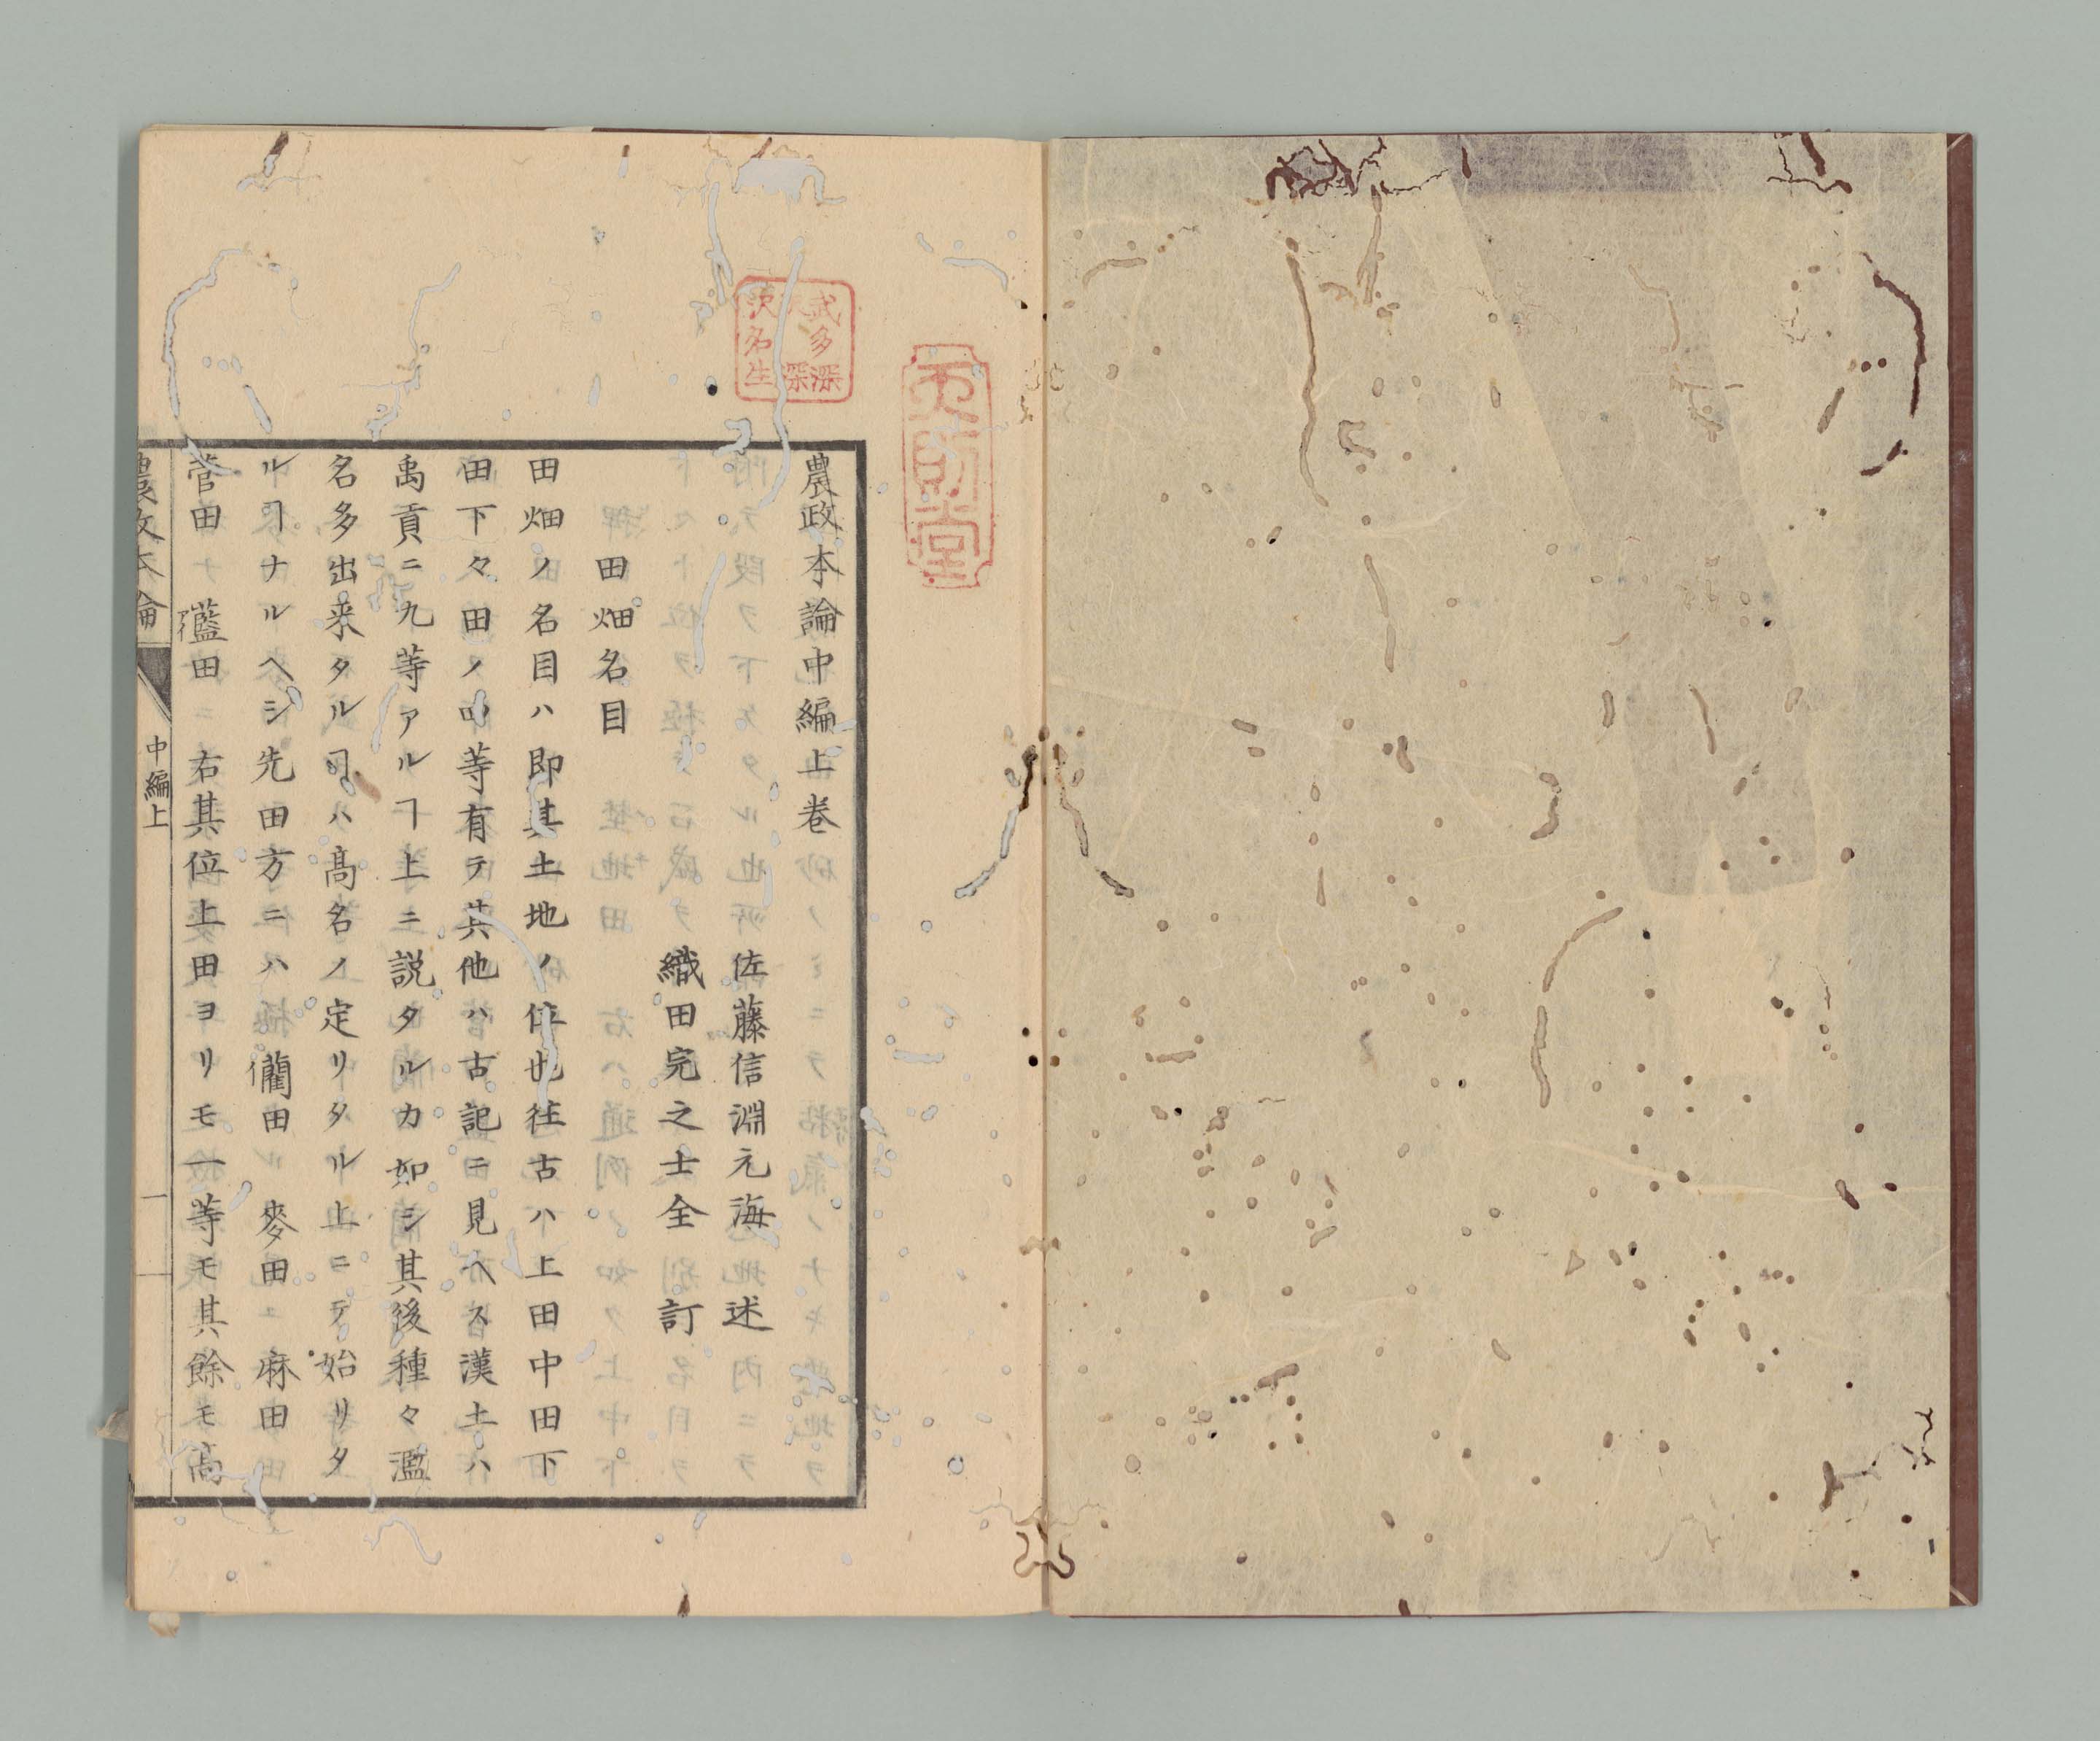 農政本論中編上卷
佐藤信淵元海述
織田完之士全訂
田畑名目
田畑ノ名目ハ即其土地ノ位也往古ハ上田中田下
田下々田ノ四等有テ其他ハ古記ニ見ヘス漢土ハ
禹貢ニ九等アルヿ上ニ説タルカ如シ其後種々濫
名多出来タルヿハ髙名ノ定リタル上ニテ始リタ
ルヿナルヘシ先田方ニハ藺田麥田麻田
菅田藍田右其位上田ヨリモ一等モ其餘モ高
農政本論
中編上
一